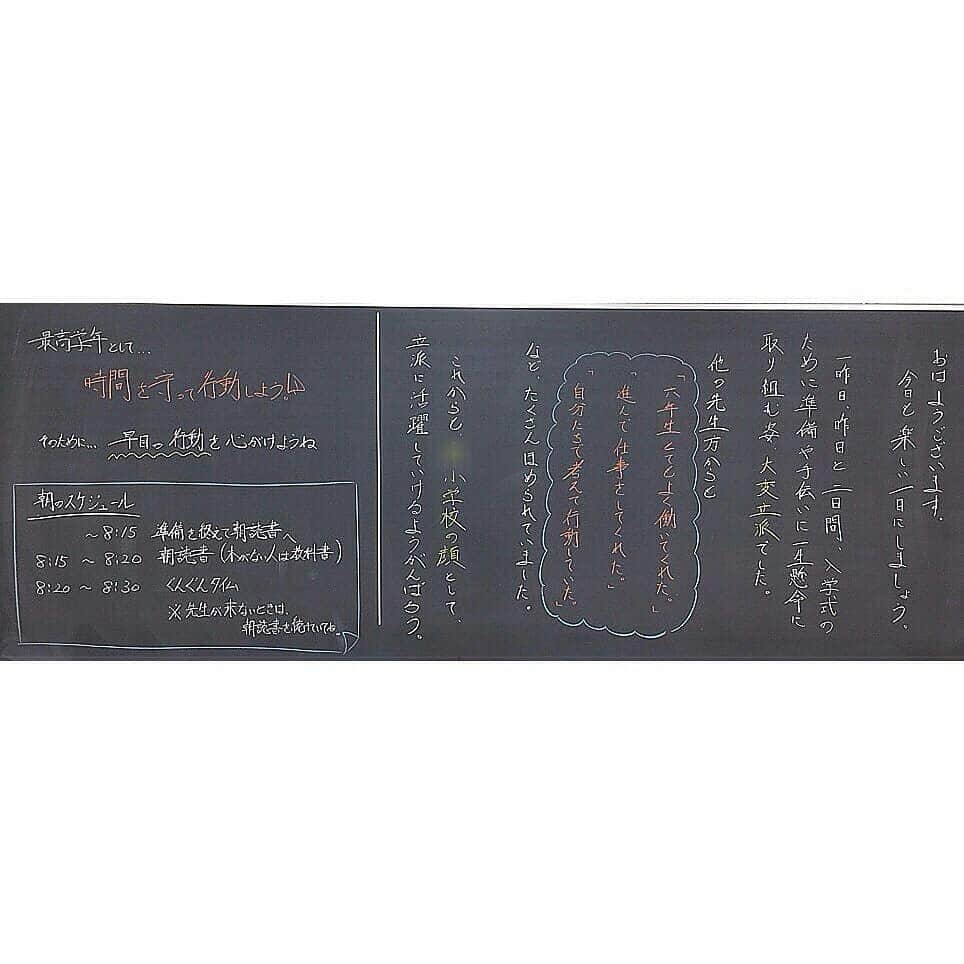 おはようございます。
今日も楽しい一日にしましょう。
一昨日、昨日と二日間、入学式の
ために準備や手伝いに一生懸命に
取り組む姿、大変立派でした。
他の先生方からも
「六年生とてもよく働いてくれた。」
「進んで仕事をしてくれた。」
「自分たちで考えて行動していた。」
など、たくさんほめられていました。
これからも 小学校の顔として、
立派に活躍していけるようがんばろう。
最高学年として…
時間を守って行動しよう!♪
そのために… 早目の行動を心がけようね
朝のスケジュール
～8:15 準備を終えて朝読書へ
8:15 ～ 8:20 朝読書(本がない人は教科書)
8:20 ～ 8:30 ぐんぐんタイム
※先生が来ないときは、
朝読書を続けていてね。